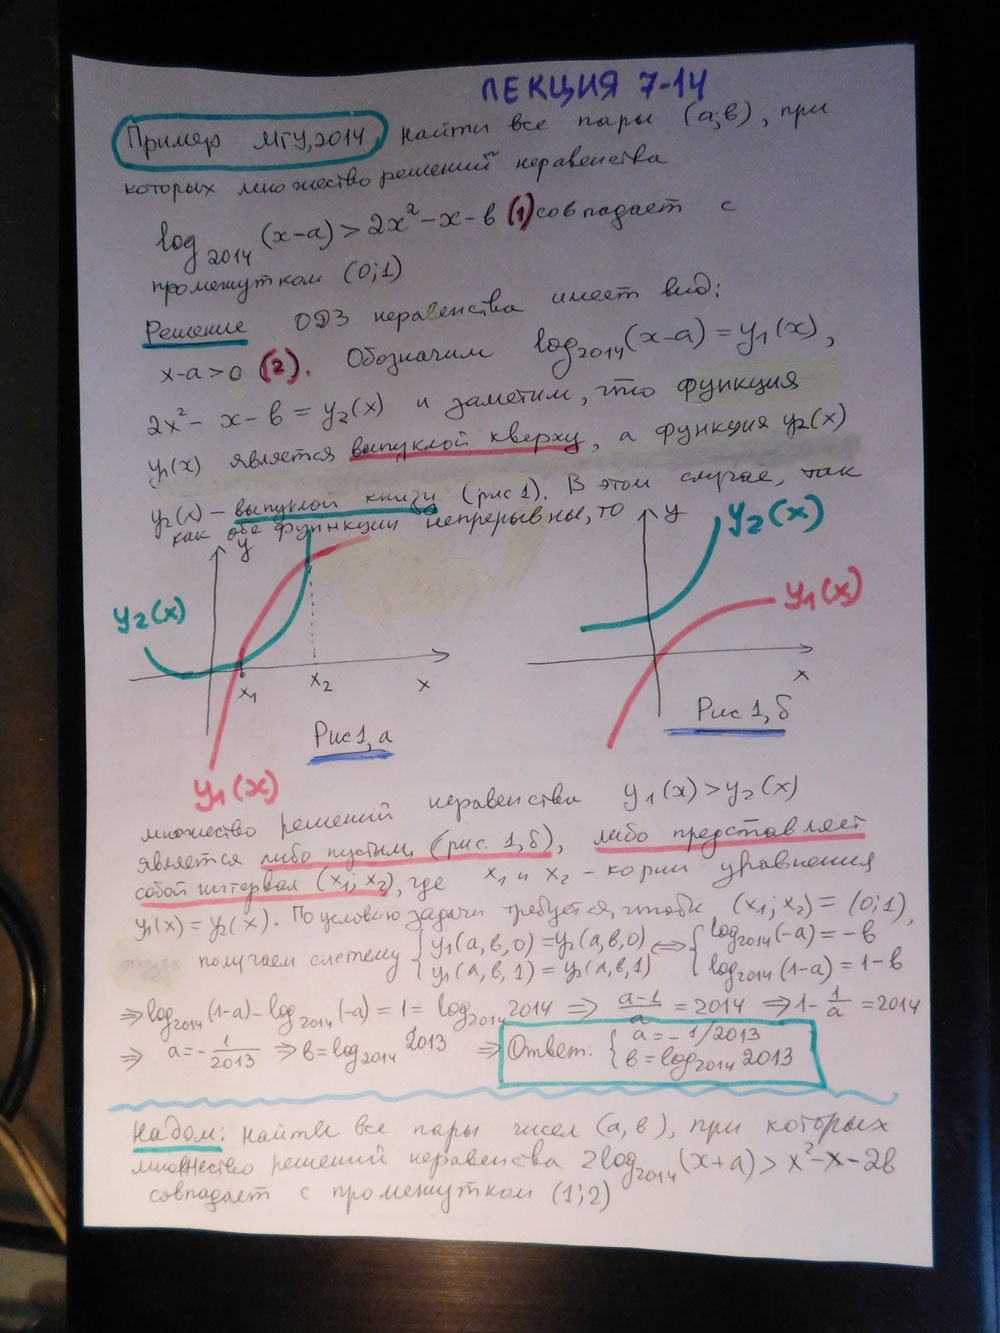 ЛЕКЦИЯ 7-14
Пример МГУ,2014 найти все пары (a,b), при
которых множество решений неравенства
log₂₀₁₄(x-a)>2x²-x-b (1) совпадает с
промежутком (0;1)
Решение ОДЗ неравенства имеет вид:
x-a>0 (2). Обозначим log₂₀₁₄(x-a)=y₁(x),
2x²-x-b=y₂(x) и заметим, что функция
y₁(x) является выпуклой кверху, а функция y₂(x)
y₂(x) – выпуклой книзу (рис 1). В этом случае, так
как обе функции непрерывны, то
y
y
y₂(x)
y₂(x)
y₁(x)
x₁
x₂
x
x
Рис 1, а
Рис 1, б
y₁(x)
множество решений неравенства y₁(x)>y₂(x)
является либо пустым (рис. 1, б), либо представляет
собой интервал (x₁; x₂), где x₁ и x₂ – корни уравнения
y₁(x)=y₂(x). По условию задачи требуется, чтобы (x₁; x₂)=(0;1),
получаем систему { y₁(a,b,0)=y₂(a,b,0) ⇔ { log₂₀₁₄(-a)=-b
y₁(a,b,1)=y₂(a,b,1) log₂₀₁₄(1-a)=1-b
⇒ log₂₀₁₄(1-a)-log₂₀₁₄(-a)=1=log₂₀₁₄2014 ⇒ (a-1)/a=2014 ⇒ 1-1/a=2014
⇒ a=-1/2013 ⇒ b=log₂₀₁₄2013 ⇒ Ответ: { a=-1/2013
b=log₂₀₁₄2013
На дом: найти все пары чисел (a,b), при которых
множество решений неравенства 2log₂₀₁₄(x+a)>x²-x-2b
совпадает с промежутком (1;2)